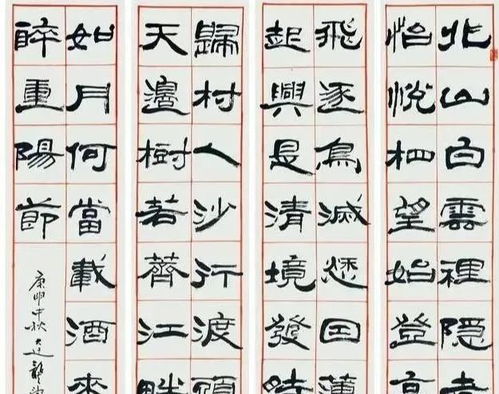 北山白雲裡隱者
怡悅相望始登高
飛逐鳥滅愁因薄
起興是清境發時
歸村人沙行渡頭
天邊樹若薺江畔
如月何當載酒來
醉重陽節
中秋